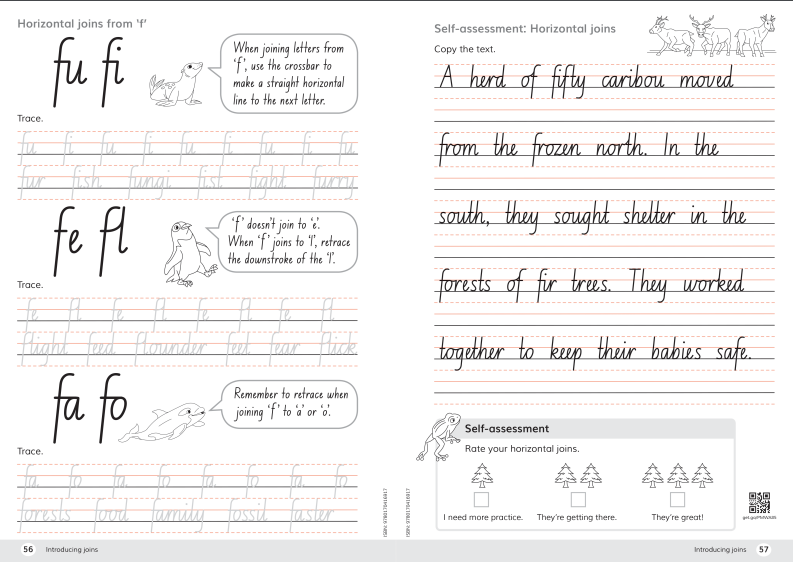 Horizontal joins from 'f'
fu fi
When joining letters from
'f', use the crossbar to
make a straight horizontal
line to the next letter.
Trace.
fu fi fu fi fu fi fu fi fu
fur fish fungi fist fight furry
fe fl
'f' doesn't join to 'e'.
When 'f' joins to 'l', retrace
the downstroke of the 'l'.
Trace.
fe fl fe fl fe fl fe fl
flight feed flounder feet fear flick
fa fo
Remember to retrace when
joining 'f' to 'a' or 'o'.
Trace.
fa fo fa fo fa fo fa fo
forests food family fossil faster
ISBN: 9780170416917
56 Introducing joins
Self-assessment: Horizontal joins
Copy the text.
A herd of fifty caribou moved
from the frozen north. In the
south, they sought shelter in the
forests of fir trees. They worked
together to keep their babies safe.
Self-assessment
Rate your horizontal joins.
I need more practice. They're getting there. They're great!
ISBN: 9780170416917
Introducing joins 57